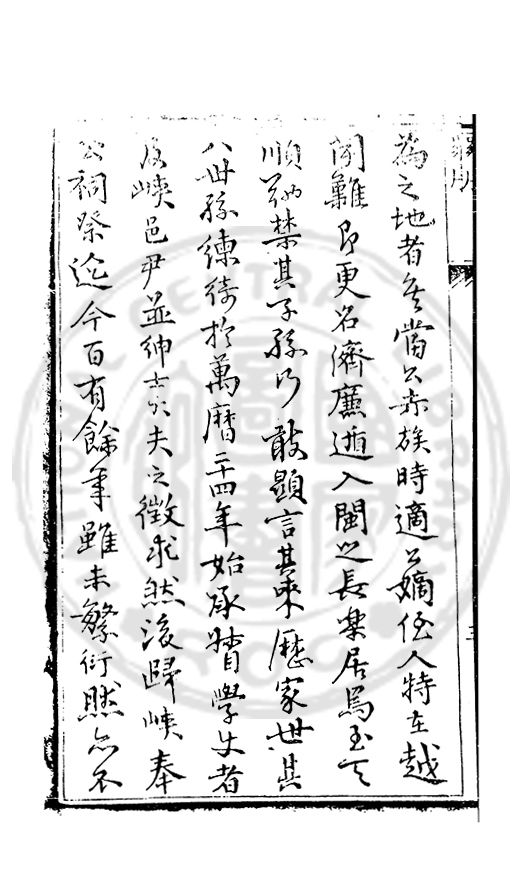 為之地者矣當公赤族時適公嫡侄人特在越
聞難即更名濟遁入閩之長樂居焉至天
順弛禁其子孫乃敢顯言其來歷家世其
八世孫練綺於萬曆二十四年始承督學史者
及峽邑尹並紳士大夫之徵求然後歸峽奉
公祠祭迄今百有餘年雖未繁衍然亦不